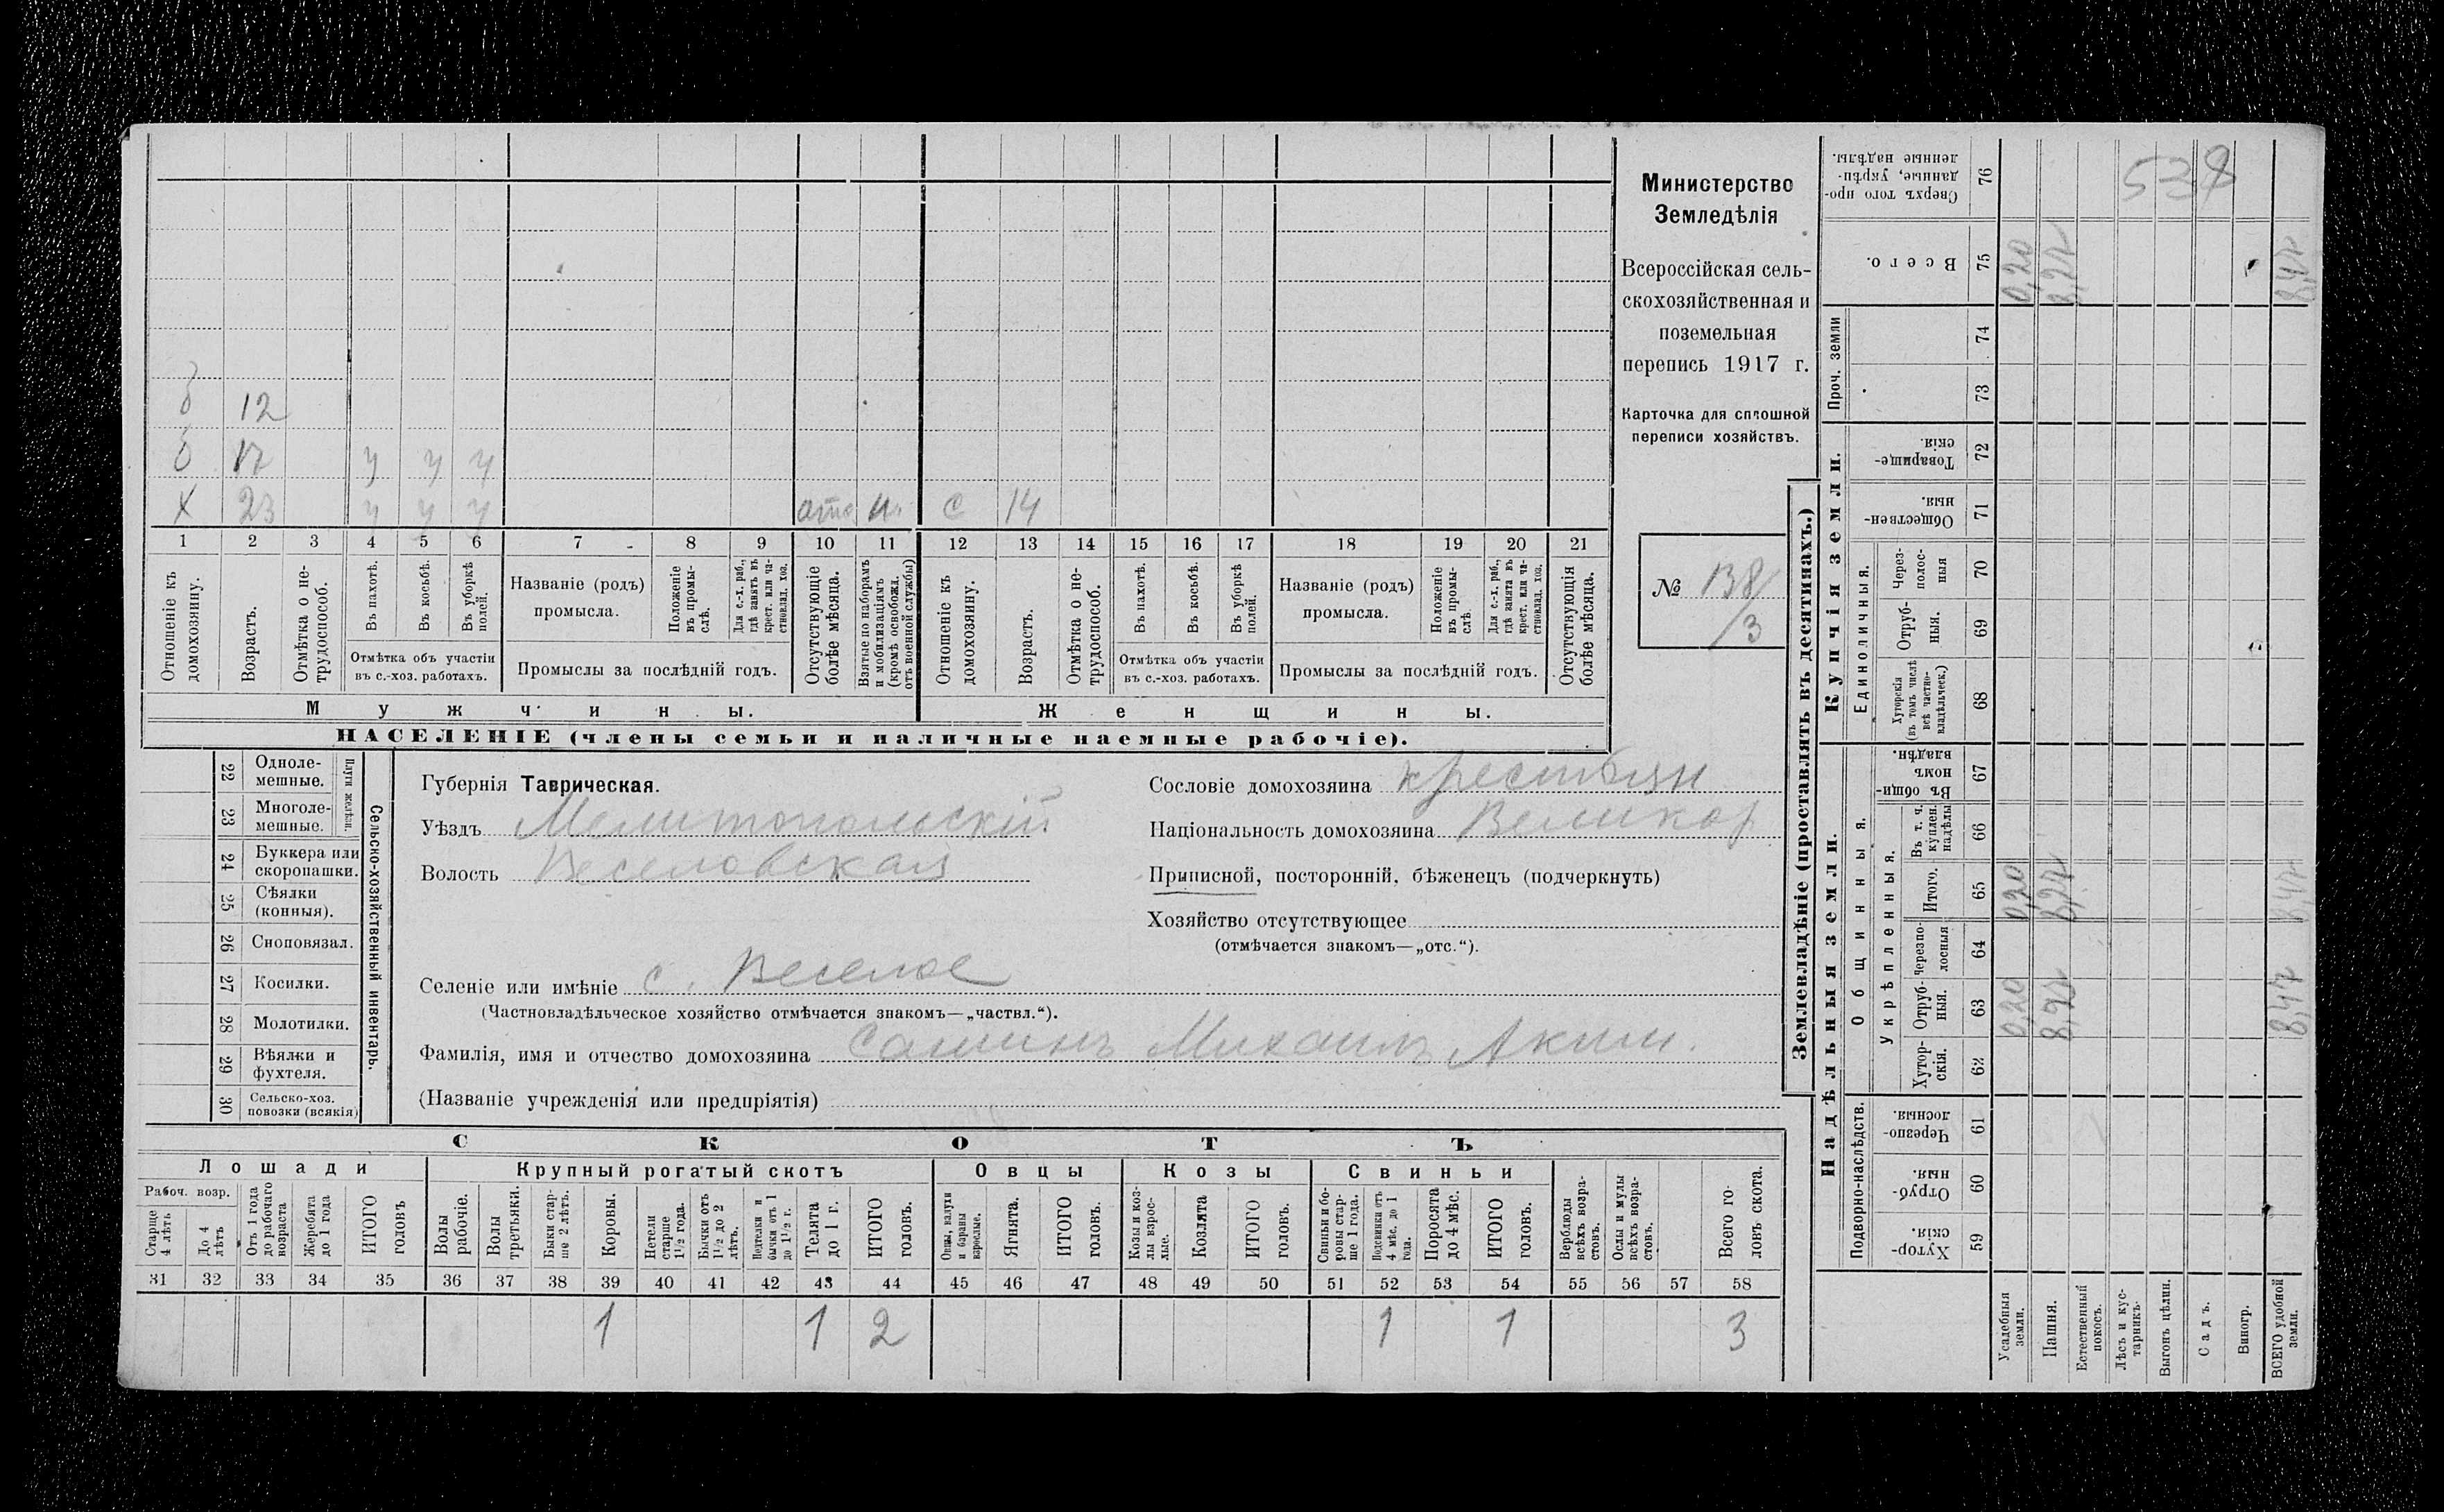 Министерство
Земледѣлія
Всероссійская сель-
скохозяйственная и
поземельная
перепись 1917 г.
Карточка для сплошной
переписи хозяйствъ.
№ 138/
/3
б 12
б 17 у у у
х 23 у у у отс с 14
1 2 3 4 5 6 7 8 9 10 11 12 13 14 15 16 17 18 19 20 21
Отношеніе къ домохозяину.
Возрастъ.
Отмѣтка о не-трудоспособ.
Въ пахотѣ.
Въ косьбѣ.
Въ уборкѣ полей.
Отмѣтка объ участіи въ с.-хоз. работахъ.
Названіе (родъ) промысла.
Положеніе въ промы-слѣ.
Для с.-х. раб., гдѣ занятъ въ крест. или ча-стновлад. хоз.
Промыслы за послѣдній годъ.
Отсутствующіе болѣе мѣсяца.
Взятые по наборамъ и мобилизаціямъ (кромѣ освобожд. отъ военной службы)
Отношеніе къ домохозяину.
Возрастъ.
Отмѣтка о не-трудоспособ.
Въ пахотѣ.
Въ косьбѣ.
Въ уборкѣ полей.
Отмѣтка объ участіи въ с.-хоз. работахъ.
Названіе (родъ) промысла.
Положеніе въ промы-слѣ.
Для с.-х. раб., гдѣ занята въ крест. или ча-стновлад. хоз.
Промыслы за послѣдній годъ.
Отсутствующія болѣе мѣсяца.
Мужчины.
Женщины.
НАСЕЛЕНІЕ (члены семьи и наличные наемные рабочіе).
22 Одноле-мешные.
23 Многоле-мешные.
Плуги желѣзн.
24 Буккера или скоропашки.
25 Сѣялки (конныя).
26 Сноповязал.
27 Косилки.
28 Молотилки.
29 Вѣялки и фухтеля.
30 Сельско-хоз. повозки (всякія)
Сельско-хозяйственный инвентарь.
Губернія Таврическая.
Уѣздъ Мелитопольскій
Волость Веселовская
Сословіе домохозяина крестьян
Національность домохозяина Великор
Приписной, посторонній, бѣженецъ (подчеркнуть)
Хозяйство отсутствующее
(отмѣчается знакомъ—„отс.“).
Селеніе или имѣніе с. Веселое
(Частновладѣльческое хозяйство отмѣчается знакомъ—„частвл.“).
Фамилія, имя и отчество домохозяина Михаилъ Аким.
(Названіе учрежденія или предпріятія)
СКОТЪ
Лошади
Крупный рогатый скотъ
Овцы
Козы
Свиньи
Рабоч. возр.
Старше 4 лѣтъ
До 4 лѣтъ
Отъ 1 года до рабочаго возраста
Жеребята до 1 года
ИТОГО головъ
Волы рабочіе.
Волы третьяки.
Быки стар-ше 2 лѣтъ.
Коровы.
Нетели старше 1½ года.
Бычки отъ 1½ до 2 лѣтъ.
бычки отъ 1 до 1½ г.
Телята до 1 г.
ИТОГО головъ.
Овцы, валухи и бараны взрослые.
Ягнята.
ИТОГО головъ.
Козы и коз-лы взрос-лые.
Козлята
ИТОГО головъ.
Свиньи и бо-ровы стар-ше 1 года.
Подсвинки отъ 4 мѣс. до 1 года.
Поросята до 4 мѣс.
ИТОГО головъ.
Верблюды всѣхъ возра-стовъ.
Ослы и мулы всѣхъ возра-стовъ.
Всего го-ловъ скота.
31 32 33 34 35 36 37 38 39 40 41 42 43 44 45 46 47 48 49 50 51 52 53 54 55 56 57 58
1 1 2 1 1 3
Землевладѣніе (проставлять въ десятинахъ.)
Надѣльныя земли.
Купчія земли.
Проч. земли
Подворно-наслѣдств.
Общинныя.
Укрѣпленныя.
Единоличныя.
59 Хутор-скія.
60 Отруб-ныя.
61 Черезпо-лосныя.
62 Хутор-скія.
63 Отруб-ныя. 0,20 8,27 8,47
64 Черезпо-лосныя
65 Итого. 0,20 8,27 8,47
66 Въ т. ч. куплен. надѣлы
67 Въ общи-номъ владѣн.
68 Хуторскія (въ томъ числѣ всѣ частно-владѣльческ.)
69 Отруб-ныя.
70 Через-полос-ныя
71 Обществен-ныя.
72 Товарище-скія.
73
74
75 Всего. 0,20 8,27 8,47
76 Сверхъ того про-данные, укрѣп-ленные надѣлы.
538
Усадебныя земли.
Пашня.
Естественный покосъ.
Лѣсъ и кус-тарникъ.
Выгонъ цѣлин.
Садъ.
Виногр.
ВСЕГО удобной земли.